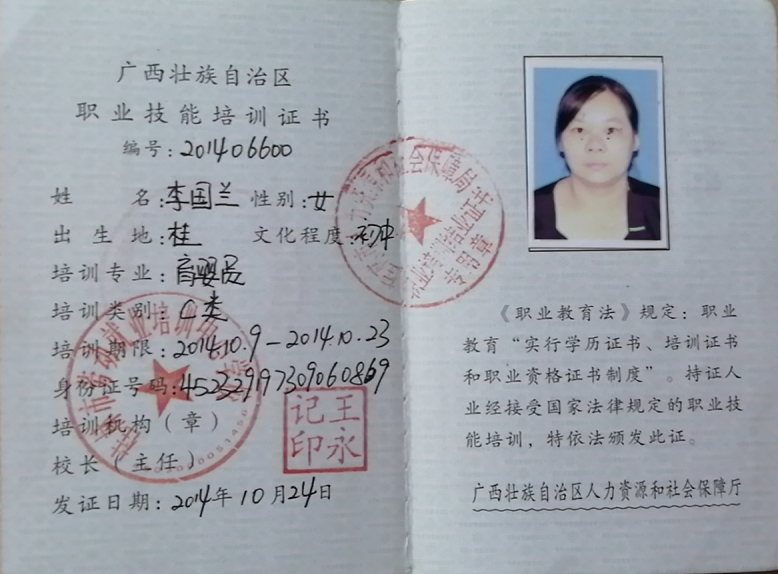 广西壮族自治区
职业技能培训证书
编号：201406600
姓名：李国兰 性别：女
出生地：桂 文化程度：初中
培训专业：育婴员
培训类别：C类
培训期限：2014.10.9－2014.10.23
身份证号码：452329197309060869
培训机构（章）
校长（主任）
发证日期：2014年10月24日
王永记印
《职业教育法》规定：职业
教育“实行学历证书、培训证书
和职业资格证书制度”。持证人
业经接受国家法律规定的职业技
能培训，特依法颁发此证。
广西壮族自治区人力资源和社会保障厅